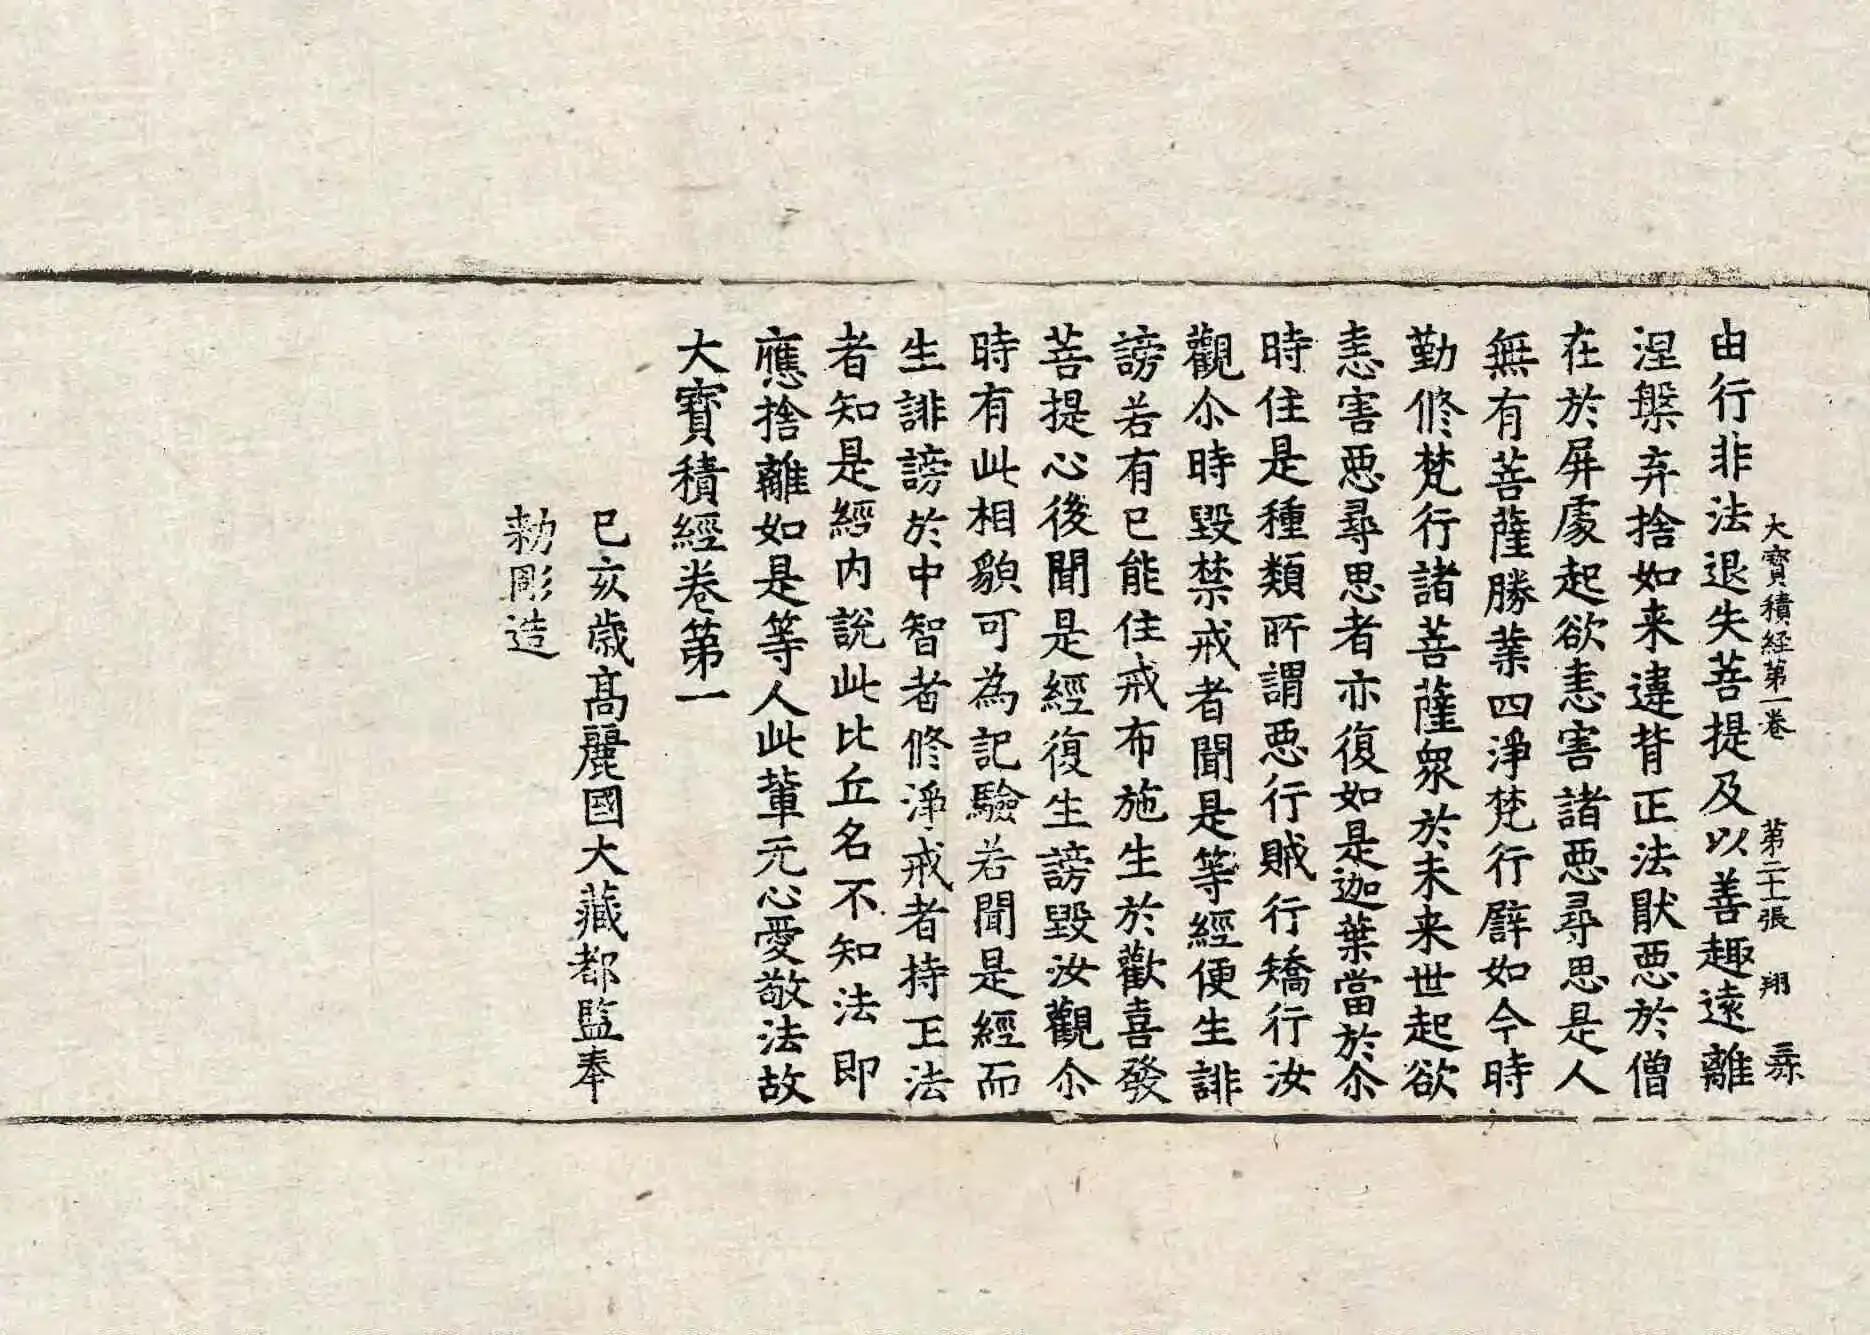 大寶積経第一卷 第二十張 翔
由行非法退失菩提及以善趣遠離
涅槃弃捨如来違背正法猒惡於僧
在於屏處起欲恚害諸惡尋思是人
無有菩薩勝業四淨梵行譬如今時
勤修梵行諸菩薩衆於未来世起欲
恚害惡尋思者亦復如是迦葉當於尒
時住是種類所謂惡行賊行矯行汝
觀尒時毀禁戒者聞是等經便生誹
謗若有已能住戒布施生於歡喜發
菩提心後聞是經復生謗毀汝觀尒
時有此相貌可為記驗若聞是經而
生誹謗於中智者修淨戒者持正法
者知是經内說此比丘名不知法即
應捨離如是等人此輩元心愛敬法故
大寶積經卷第一
己亥歲高麗國大藏都監奉
勅彫造